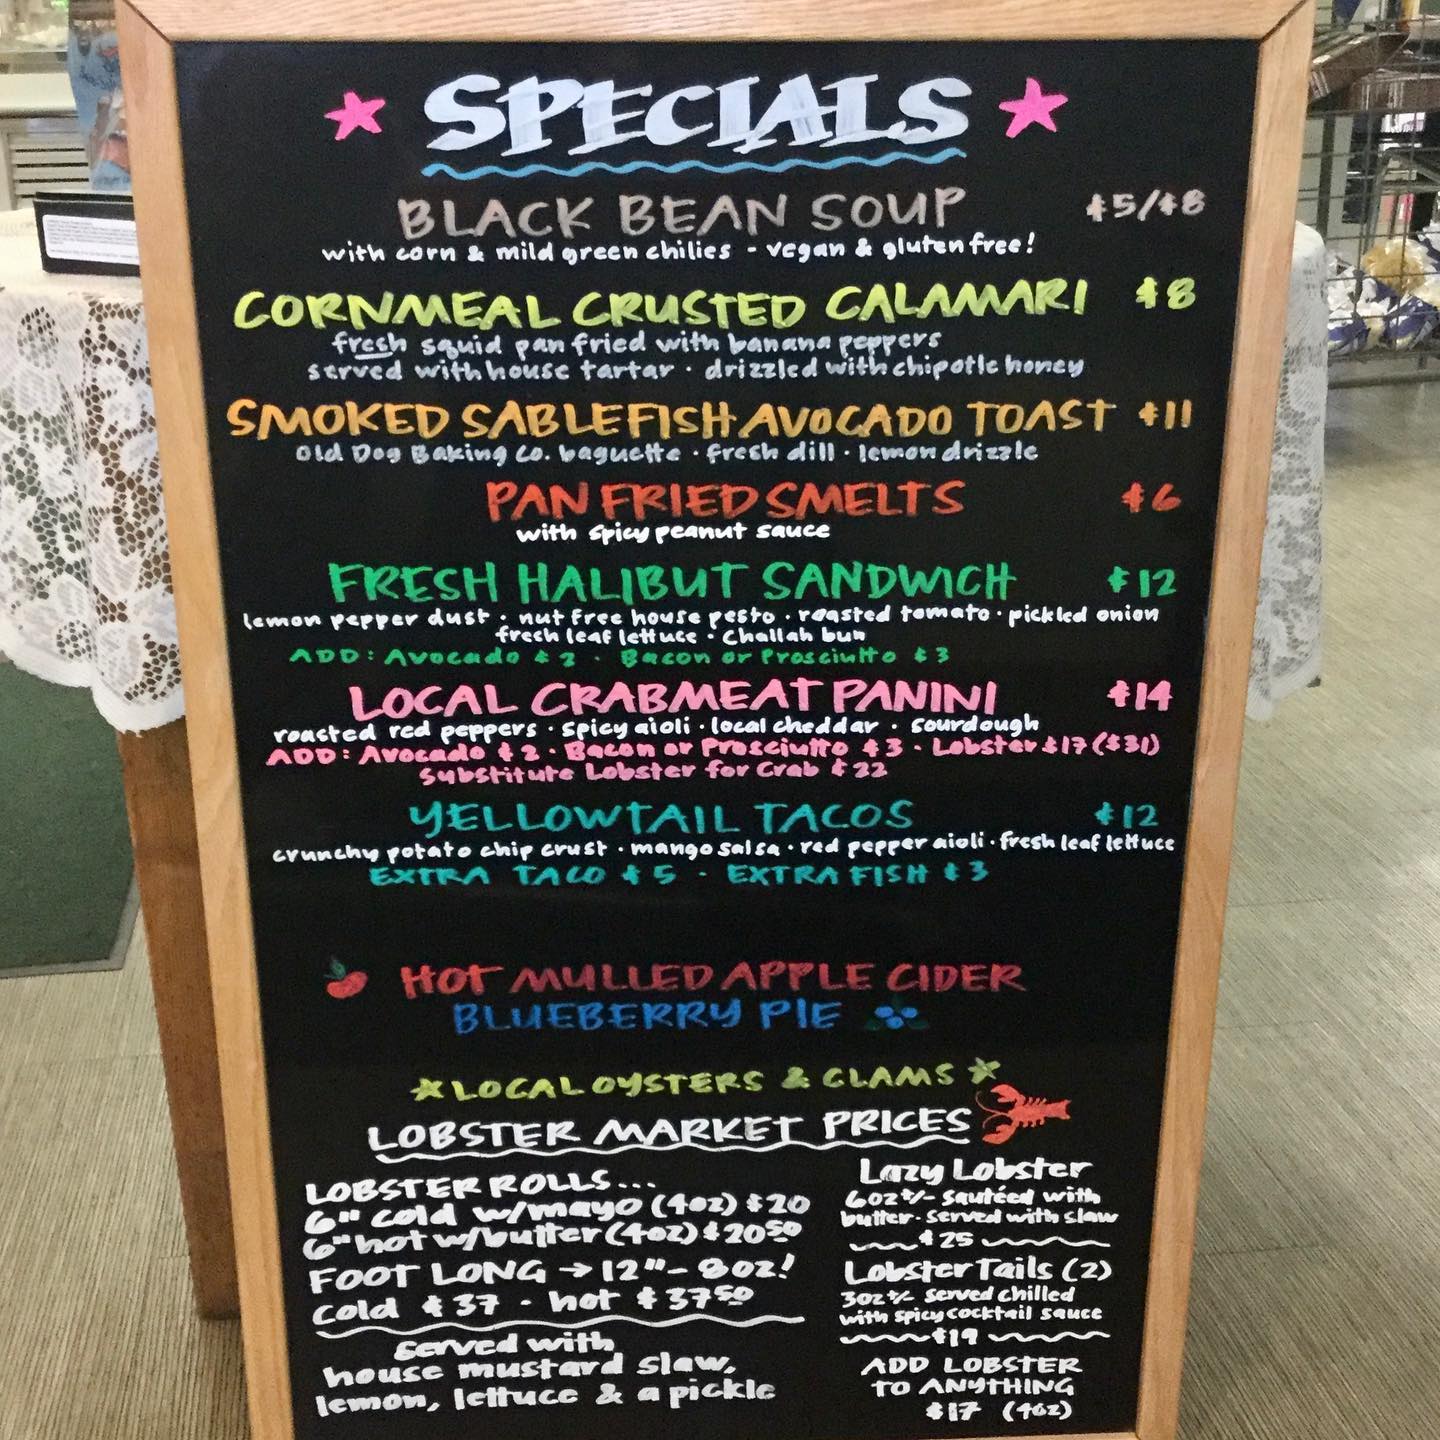 SPECIALS
BLACK BEAN SOUP $5/$8
with corn & mild green chilies - vegan & gluten free!
CORNMEAL CRUSTED CALAMARI $8
fresh squid pan fried with banana peppers
served with house tartar · drizzled with chipotle honey
SMOKED SABLEFISH AVOCADO TOAST $11
Old Dog Baking Co. baguette · fresh dill · lemon drizzle
PAN FRIED SMELTS $6
with spicy peanut sauce
FRESH HALIBUT SANDWICH $12
lemon pepper dust · nut free house pesto · roasted tomato · pickled onion
fresh leaf lettuce · Challah bun
ADD: Avocado $2 · Bacon or Prosciutto $3
LOCAL CRABMEAT PANINI $14
roasted red peppers · spicy aioli · local cheddar · sourdough
ADD: Avocado $2 · Bacon or Prosciutto $3 · Lobster $17 ($31)
Substitute Lobster for Crab $22
YELLOWTAIL TACOS $12
crunchy potato chip crust · mango salsa · red pepper aioli · fresh leaf lettuce
EXTRA TACO $5 · EXTRA FISH $3
HOT MULLED APPLE CIDER
BLUEBERRY PIE
LOCAL OYSTERS & CLAMS
LOBSTER MARKET PRICES
LOBSTER ROLLS...
6" cold w/mayo (4oz) $20
6" hot w/butter (4oz) $20 50
FOOT LONG → 12" - 8oz!
cold $37 · hot $37 50
served with
house mustard slaw,
lemon, lettuce & a pickle
Lazy Lobster
6oz +/- sautéed with
butter · served with slaw
$25
Lobster Tails (2)
3oz +/- served chilled
with spicy cocktail sauce
$19
ADD LOBSTER
TO ANYTHING
$17 (4oz)